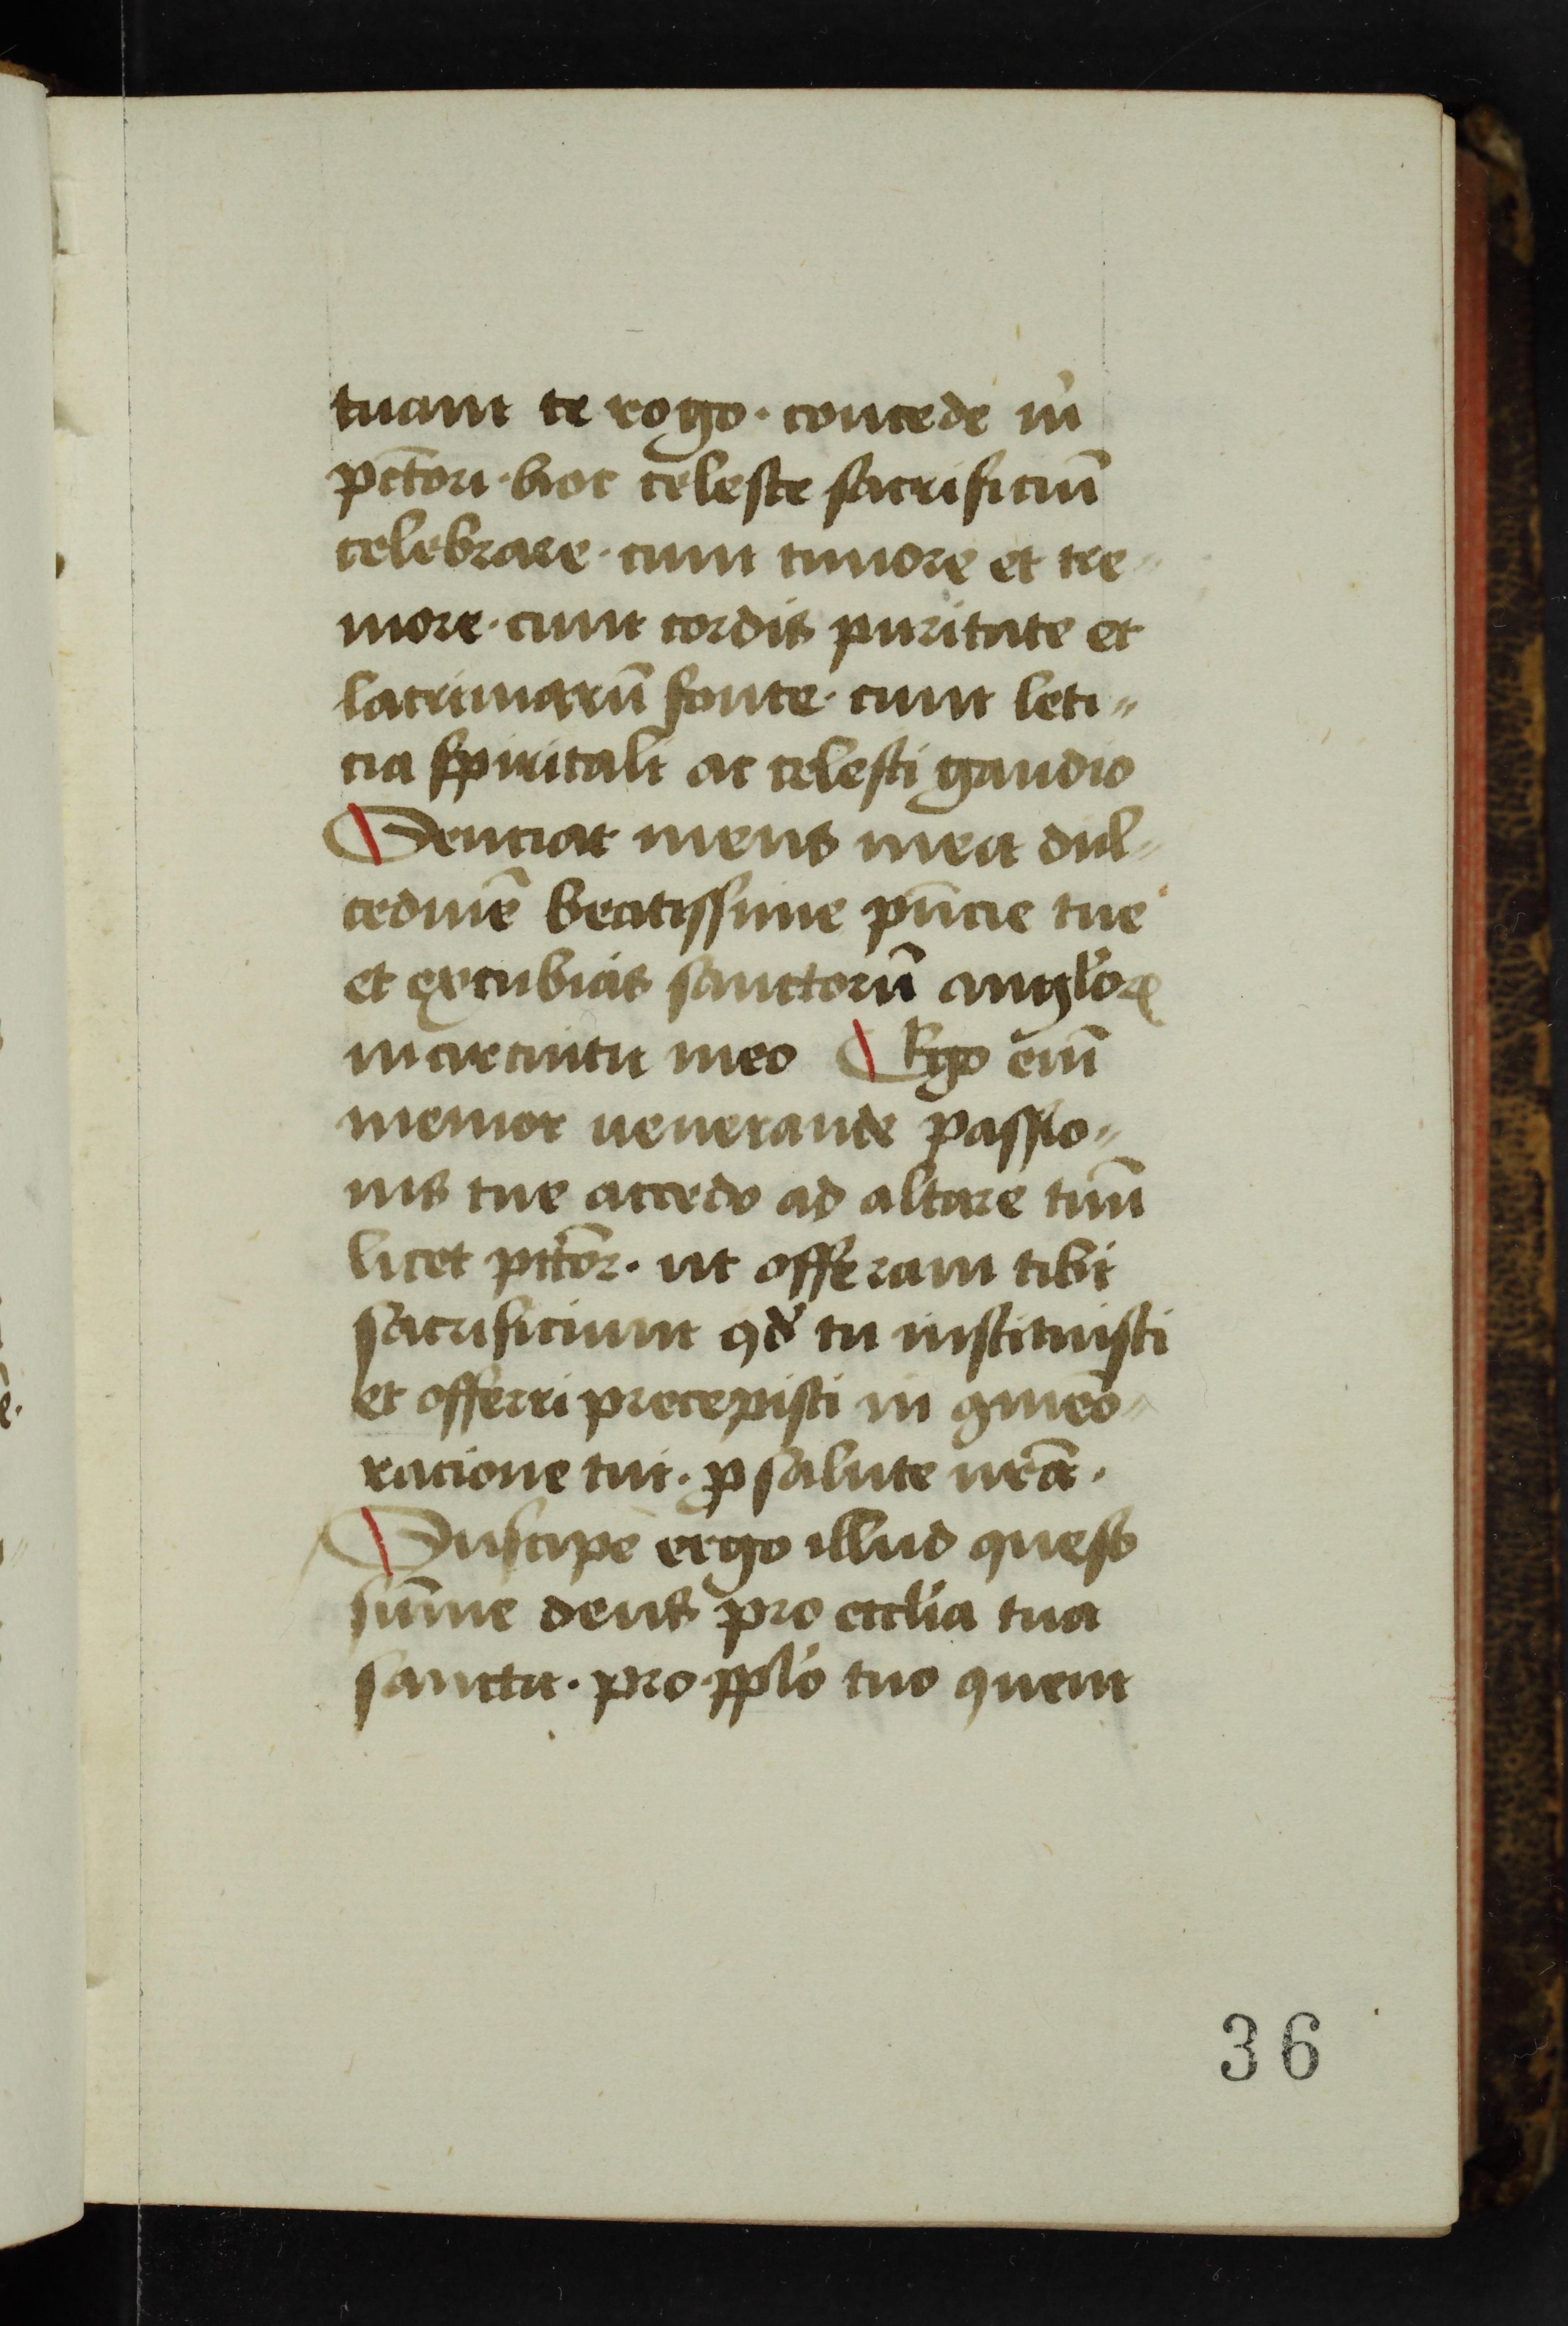 tuam te rogo · concede m̍
pctōri · hoc celeste sacrificiū
celebrare · cum timore et tre〃
more · cum cordis puritate et
lacrimarū fonte · cum leti〃
cia spiritali ac celesti gaudio
Senciat mens mea dul〃
cedinē beatissime pn̄cie tue
et excubias sanctorū angl̍oꝝ
in circuitu meo Ego eni̅
memor uenerande passio〃
nis tue accedo ad altare tuū
licet pctōr · ut offeram tibi
sacrificium qd̍ tu instituisti
et offerri precepisti in ꝯmeō〃
racione tui · ꝓ salute nr̄a ·
Suscipe ergo illud queso
sūme deus pro eccl̍ia tua
sancta · pro ppl̍o tuo quem
36